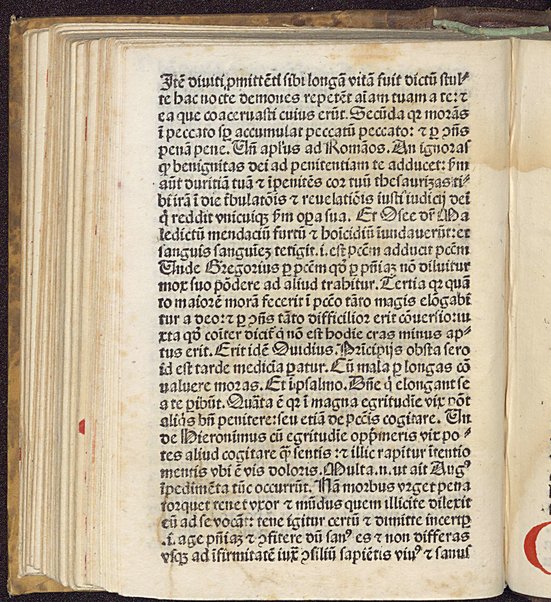 Itē diviti ꝓmittēti sibi longā vitā fuit dictū stul⸗
te hac nocte demones repetēt aīam tuam a te: ⁊
ea que coaceruasti cuius erūt. Secūda qꝛ morās
ī peccato sꝑ accumulat peccatū peccato: ⁊ ꝑ ↄñs
penā pene. Uñ apl'us ad Romāos. An ignoras
ꝙ benignitas dei ad penitentiam te adducet: ẜm
aūt duritiā tuā ⁊ īpenitēs coꝛ tuū thesaurizas ti⸗
bi irā ī die t̄bulatōis ⁊ reuelatiōis iusti iudicij dei
q̇ reddit vnicuiqꝫ ẜm opa sua. Et Osee dr̄ Ma
ledictū mendaciū furtū ⁊ hoīcidiū īundauerūt: et
sanguis sanguīeꝫ tetigit .i. est pc̄cm̄ adducit pc̄cm̄
Unde Gregorius ꝑ pc̄cm̄ qḋ ꝑ pn̄iaꝫ nō diluitur
mox suo pōdere ad aliud trahitur. Tertia qꝛ quā
to maioꝛē moꝛā fecerit ī pcc̄o tāto magis elōgabi
tur a deo: ⁊ ꝑ ↄñs tāto difficilioꝛ erit cōuersio: iu
xta qḋ coīter dicit̄ q̇ nō est hodie cras minus ap⸗
tus erit. Erit idē Ouidius. Pꝛīcipijs obsta sero
id est tarde medicīa ꝑatur. Cū mala ꝑ longas cō
ualuere moꝛas. Et īpsalmo. Bñe q̇ elongant se
a te ꝑibūt. Quāta ē qꝛ ī magna egritudīe vix pōt
aliq̇s bñ penitere: seu etiā de pc̄cis cogitare. Un
de Hieronimus cū egritudīe oppꝛimeris vix po⸗
tes aliud cogitare q̄ꝫ sentis: ⁊ illic rapitur ītentio
mentis vbi ē vis doloꝛis. Multa .n. ut ait Augꝰ
īpedimēta tūc occurrūt. Nā moꝛbus vꝛget pena
toꝛquet tenet vxoꝛ ⁊ mūdus quem illicite dilexit
eū ad se vocāt: tene igitur certū ⁊ dimitte incertū
.i. age pn̄iaꝫ ⁊ ↄfitere dū sanꝰ es ⁊ non differas
vsqꝫ ad īfirmitatē iuxᷓ ↄsiliū sapiētis viuꝰ ⁊ sanus